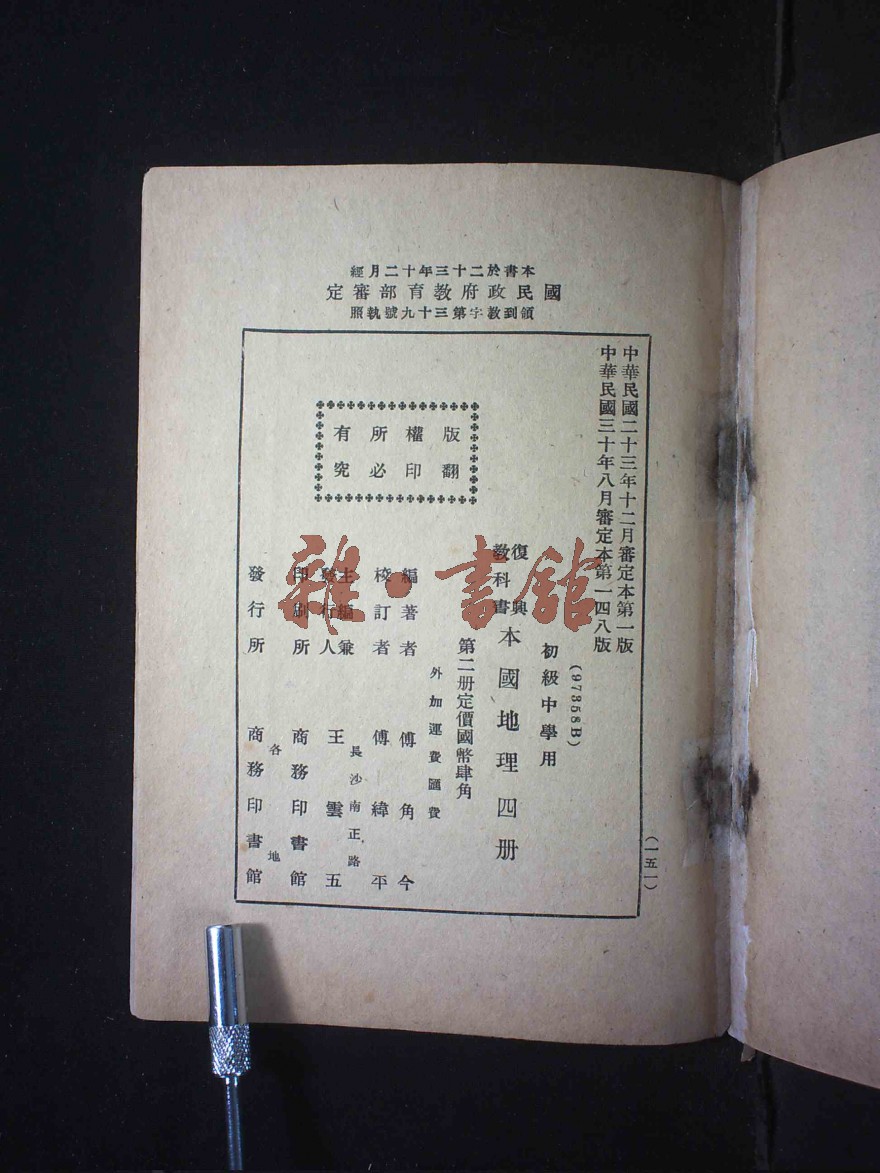 本書於二十三年十二月經
國民政府教育部審定
領到教字第三十九號執照
中華民國二十三年十二月審定本第一版
中華民國三十年八月審定本第一四八版
(一五一)
(97358B)
初級中學用
復興
教科書
本國地理四册
第二册定價國幣肆角
外加運費匯費
編著者 傅角今
校訂者 傅緯平
主編兼
發行人
長沙南正路
王雲五
印刷所 商務印書館
各地
發行所 商務印書館
版權所有
翻印必究
雜·書館